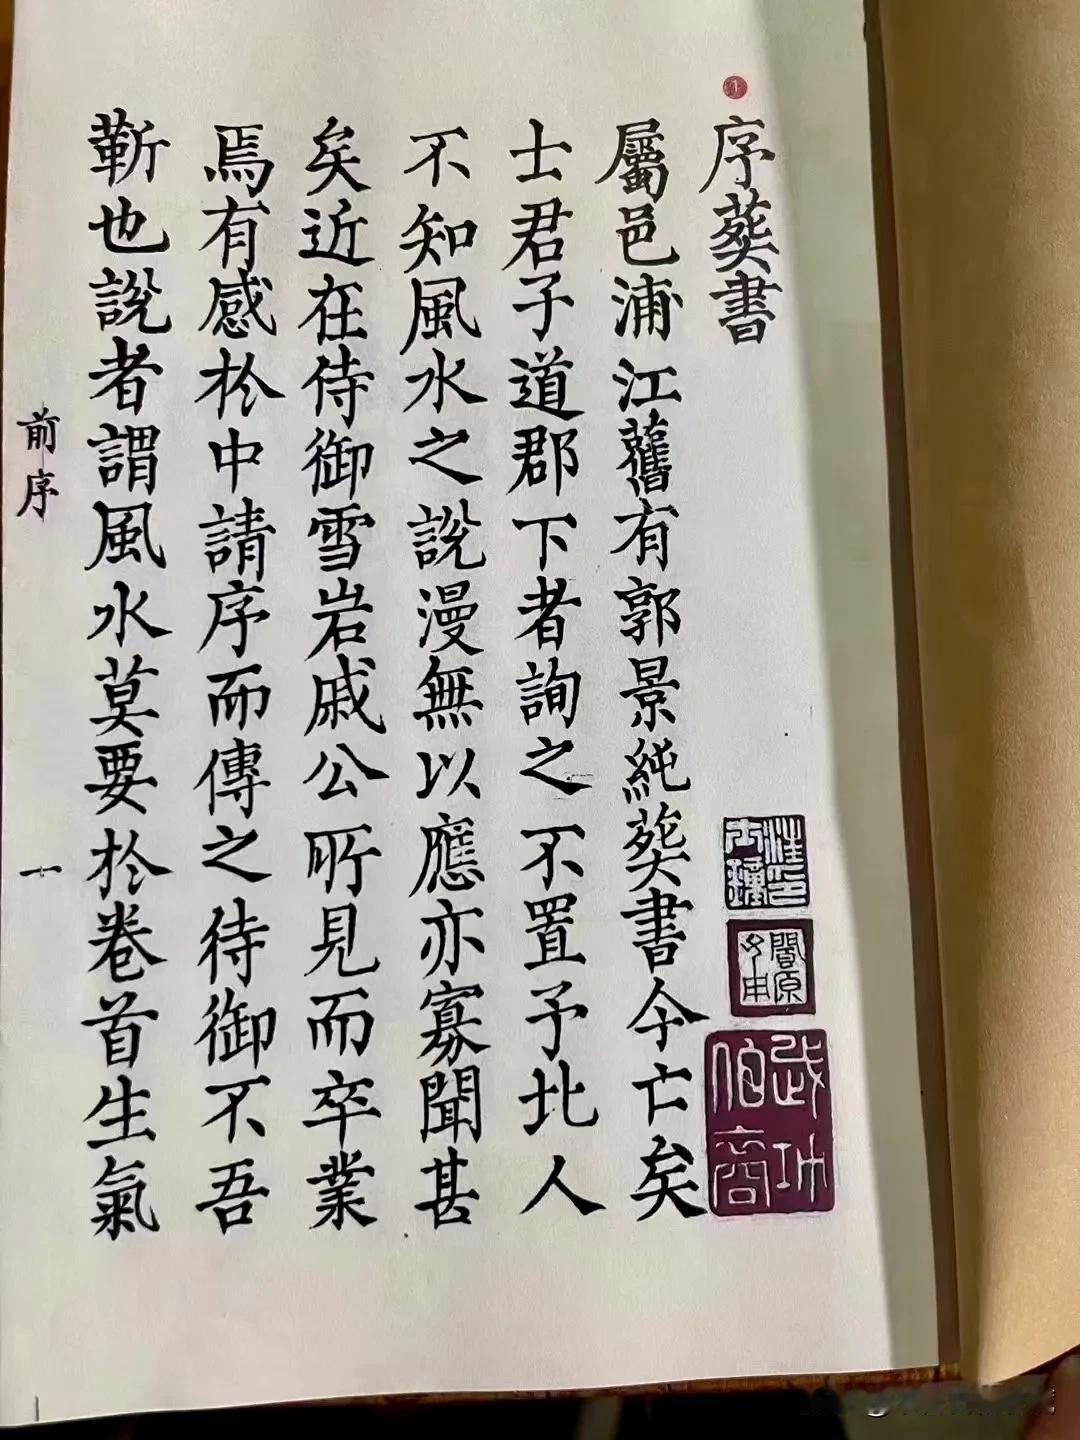 序葬書
屬邑浦江舊有郭景純葬書今亡矣
士君子道郡下者詢之不置予北人
不知風水之說漫無以應亦寡聞甚
矣近在侍御雪岩戚公所見而卒業
焉有感於中請序而傳之侍御不吾
靳也說者謂風水莫要於卷首生氣
前序
一
武功伯商